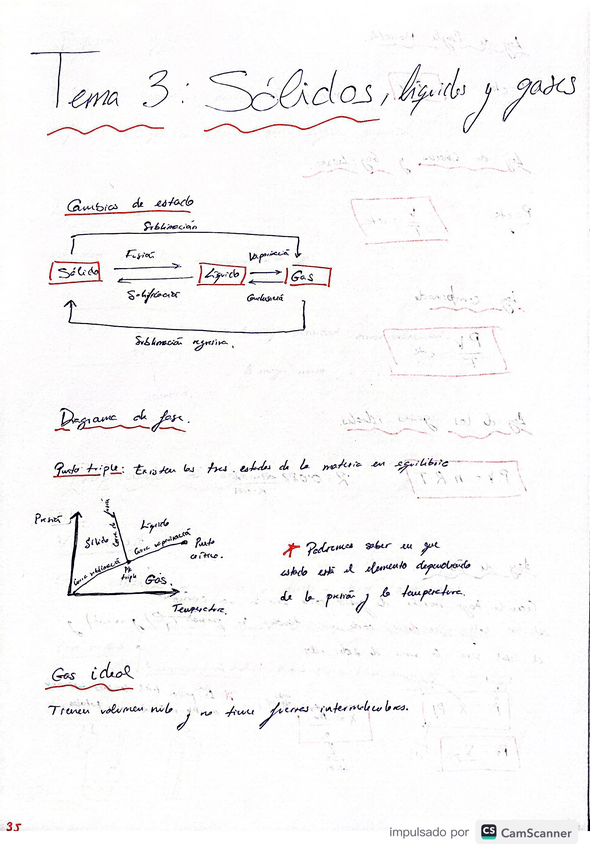 Tema 3: Sólidos, líquidos y gases
Cambios de estado
Sublimación
Fusión
Vaporización
Sólido
Líquido
Gas
Solificación
Sublimación regresiva.
Diagrama de fase.
Punto triple: Existen los tres estados de la materia en equilibrio
Presión
Sólido
Líquido
Curva de fusión
Curva vaporización
Punto
crítico.
Curva sublimación
Pto
triple
Gas.
Temperatura.
* Podremos saber en que
estado está el elemento dependiendo
de la presión y la temperatura.
Gas ideal
Tienen volumen nulo y no tiene fuerzas intermoleculares.
35
impulsado por CS CamScanner